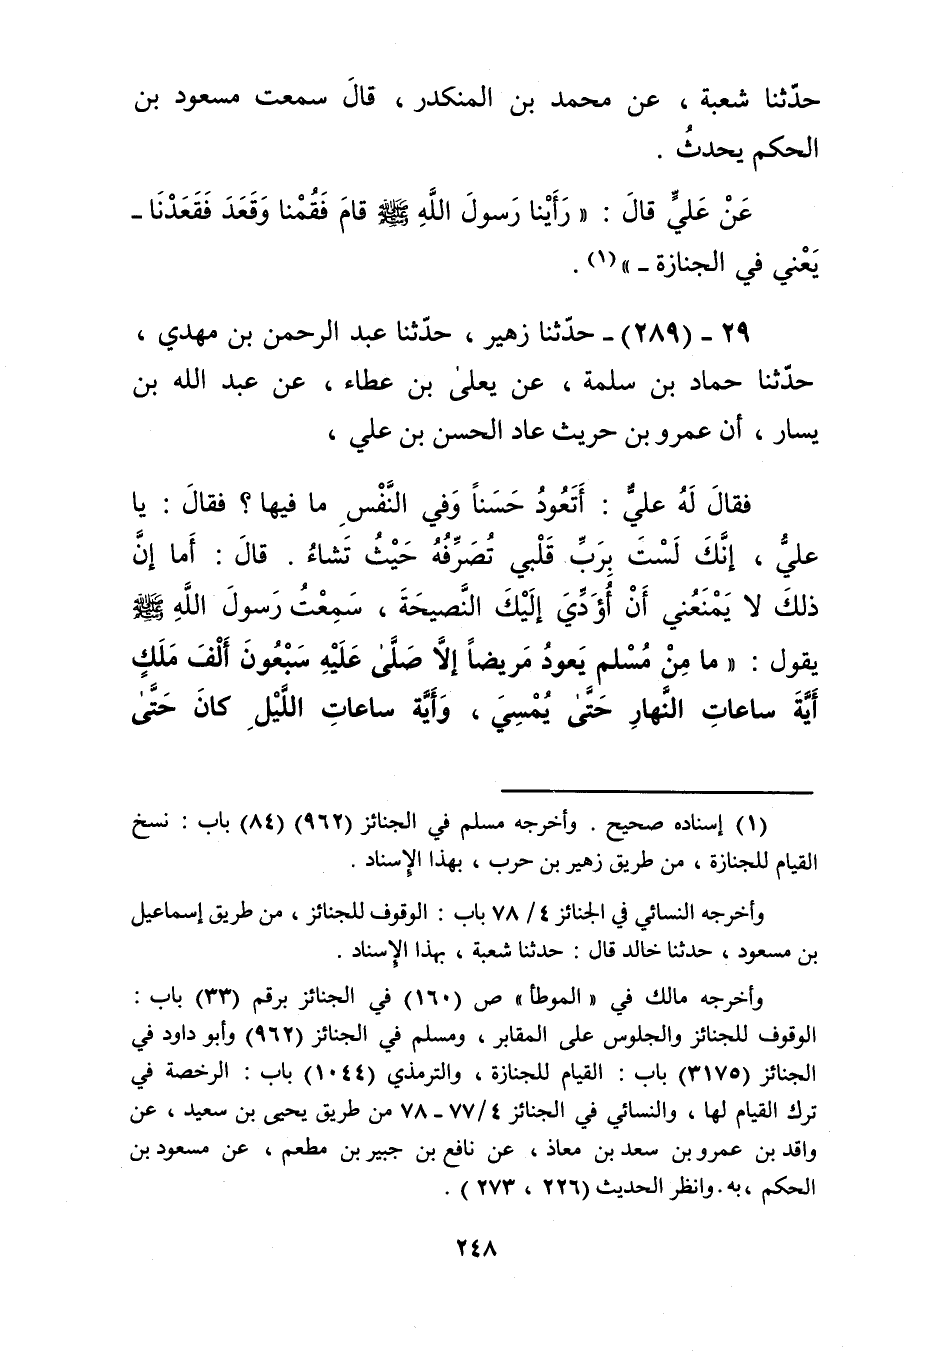 حدّثنا شعبة ، عن محمد بن المنكدر ، قالَ سمعت مسعود بن
الحكم يحدثُ .
عَنْ عَليٍّ قالَ : « رَأَيْنا رَسولَ اللَّهِ ﷺ قامَ فَقُمْنا وَقَعَدَ فَقَعَدْنَا ـ
يَعْني في الجنازة ـ »(١) .
٢٩ ـ (٢٨٩) ـ حدّثنا زهير ، حدّثنا عبد الرحمن بن مهدي ،
حدّثنا حماد بن سلمة ، عن يعلىٰ بن عطاء ، عن عبد الله بن
يسار ، أن عمرو بن حريث عاد الحسن بن علي ،
فقالَ لَهُ عليٌّ : أَتَعُودُ حَسَناً وَفي النَّفْسِ ما فيها ؟ فقالَ : يا
عليُّ ، إنَّكَ لَسْتَ بِرَبِّ قَلْبي تُصَرِّفُهُ حَيْثُ تَشاءُ . قالَ : أَما إنَّ
ذلكَ لا يَمْنَعُني أَنْ أُؤَدِّيَ إلَيْكَ النَّصيحَةَ ، سَمِعْتُ رَسولَ اللَّهِ ﷺ
يقول : « ما مِنْ مُسْلم يَعودُ مَريضاً إلَّا صَلَّىٰ عَلَيْهِ سَبْعُونَ أَلْفَ مَلَكٍ
أَيَّةَ ساعاتِ النَّهارِ حَتَّىٰ يُمْسِيَ ، وَأَيَّة ساعاتِ اللَّيْلِ كانَ حَتَّىٰ
(١) إسناده صحيح . وأخرجه مسلم في الجنائز (٩٦٢) (٨٤) باب : نسخ
القيام للجنازة ، من طريق زهير بن حرب ، بهذا الإسناد .
وأخرجه النسائي في الجنائز ٤/ ٧٨ باب : الوقوف للجنائز ، من طريق إسماعيل
بن مسعود ، حدثنا خالد قال : حدثنا شعبة ، بهذا الإسناد .
وأخرجه مالك في « الموطأ » ص (١٦٠) في الجنائز برقم (٣٣) باب :
الوقوف للجنائز والجلوس على المقابر ، ومسلم في الجنائز (٩٦٢) وأبو داود في
الجنائز (٣١٧٥) باب : القيام للجنازة ، والترمذي (١٠٤٤) باب : الرخصة في
ترك القيام لها ، والنسائي في الجنائز ٧٧/٤ ـ ٧٨ من طريق يحيى بن سعيد ، عن
واقد بن عمرو بن سعد بن معاذ ، عن نافع بن جبير بن مطعم ، عن مسعود بن
الحكم ، به . وانظر الحديث (٢٢٦ ، ٢٧٣ ) .
٢٤٨